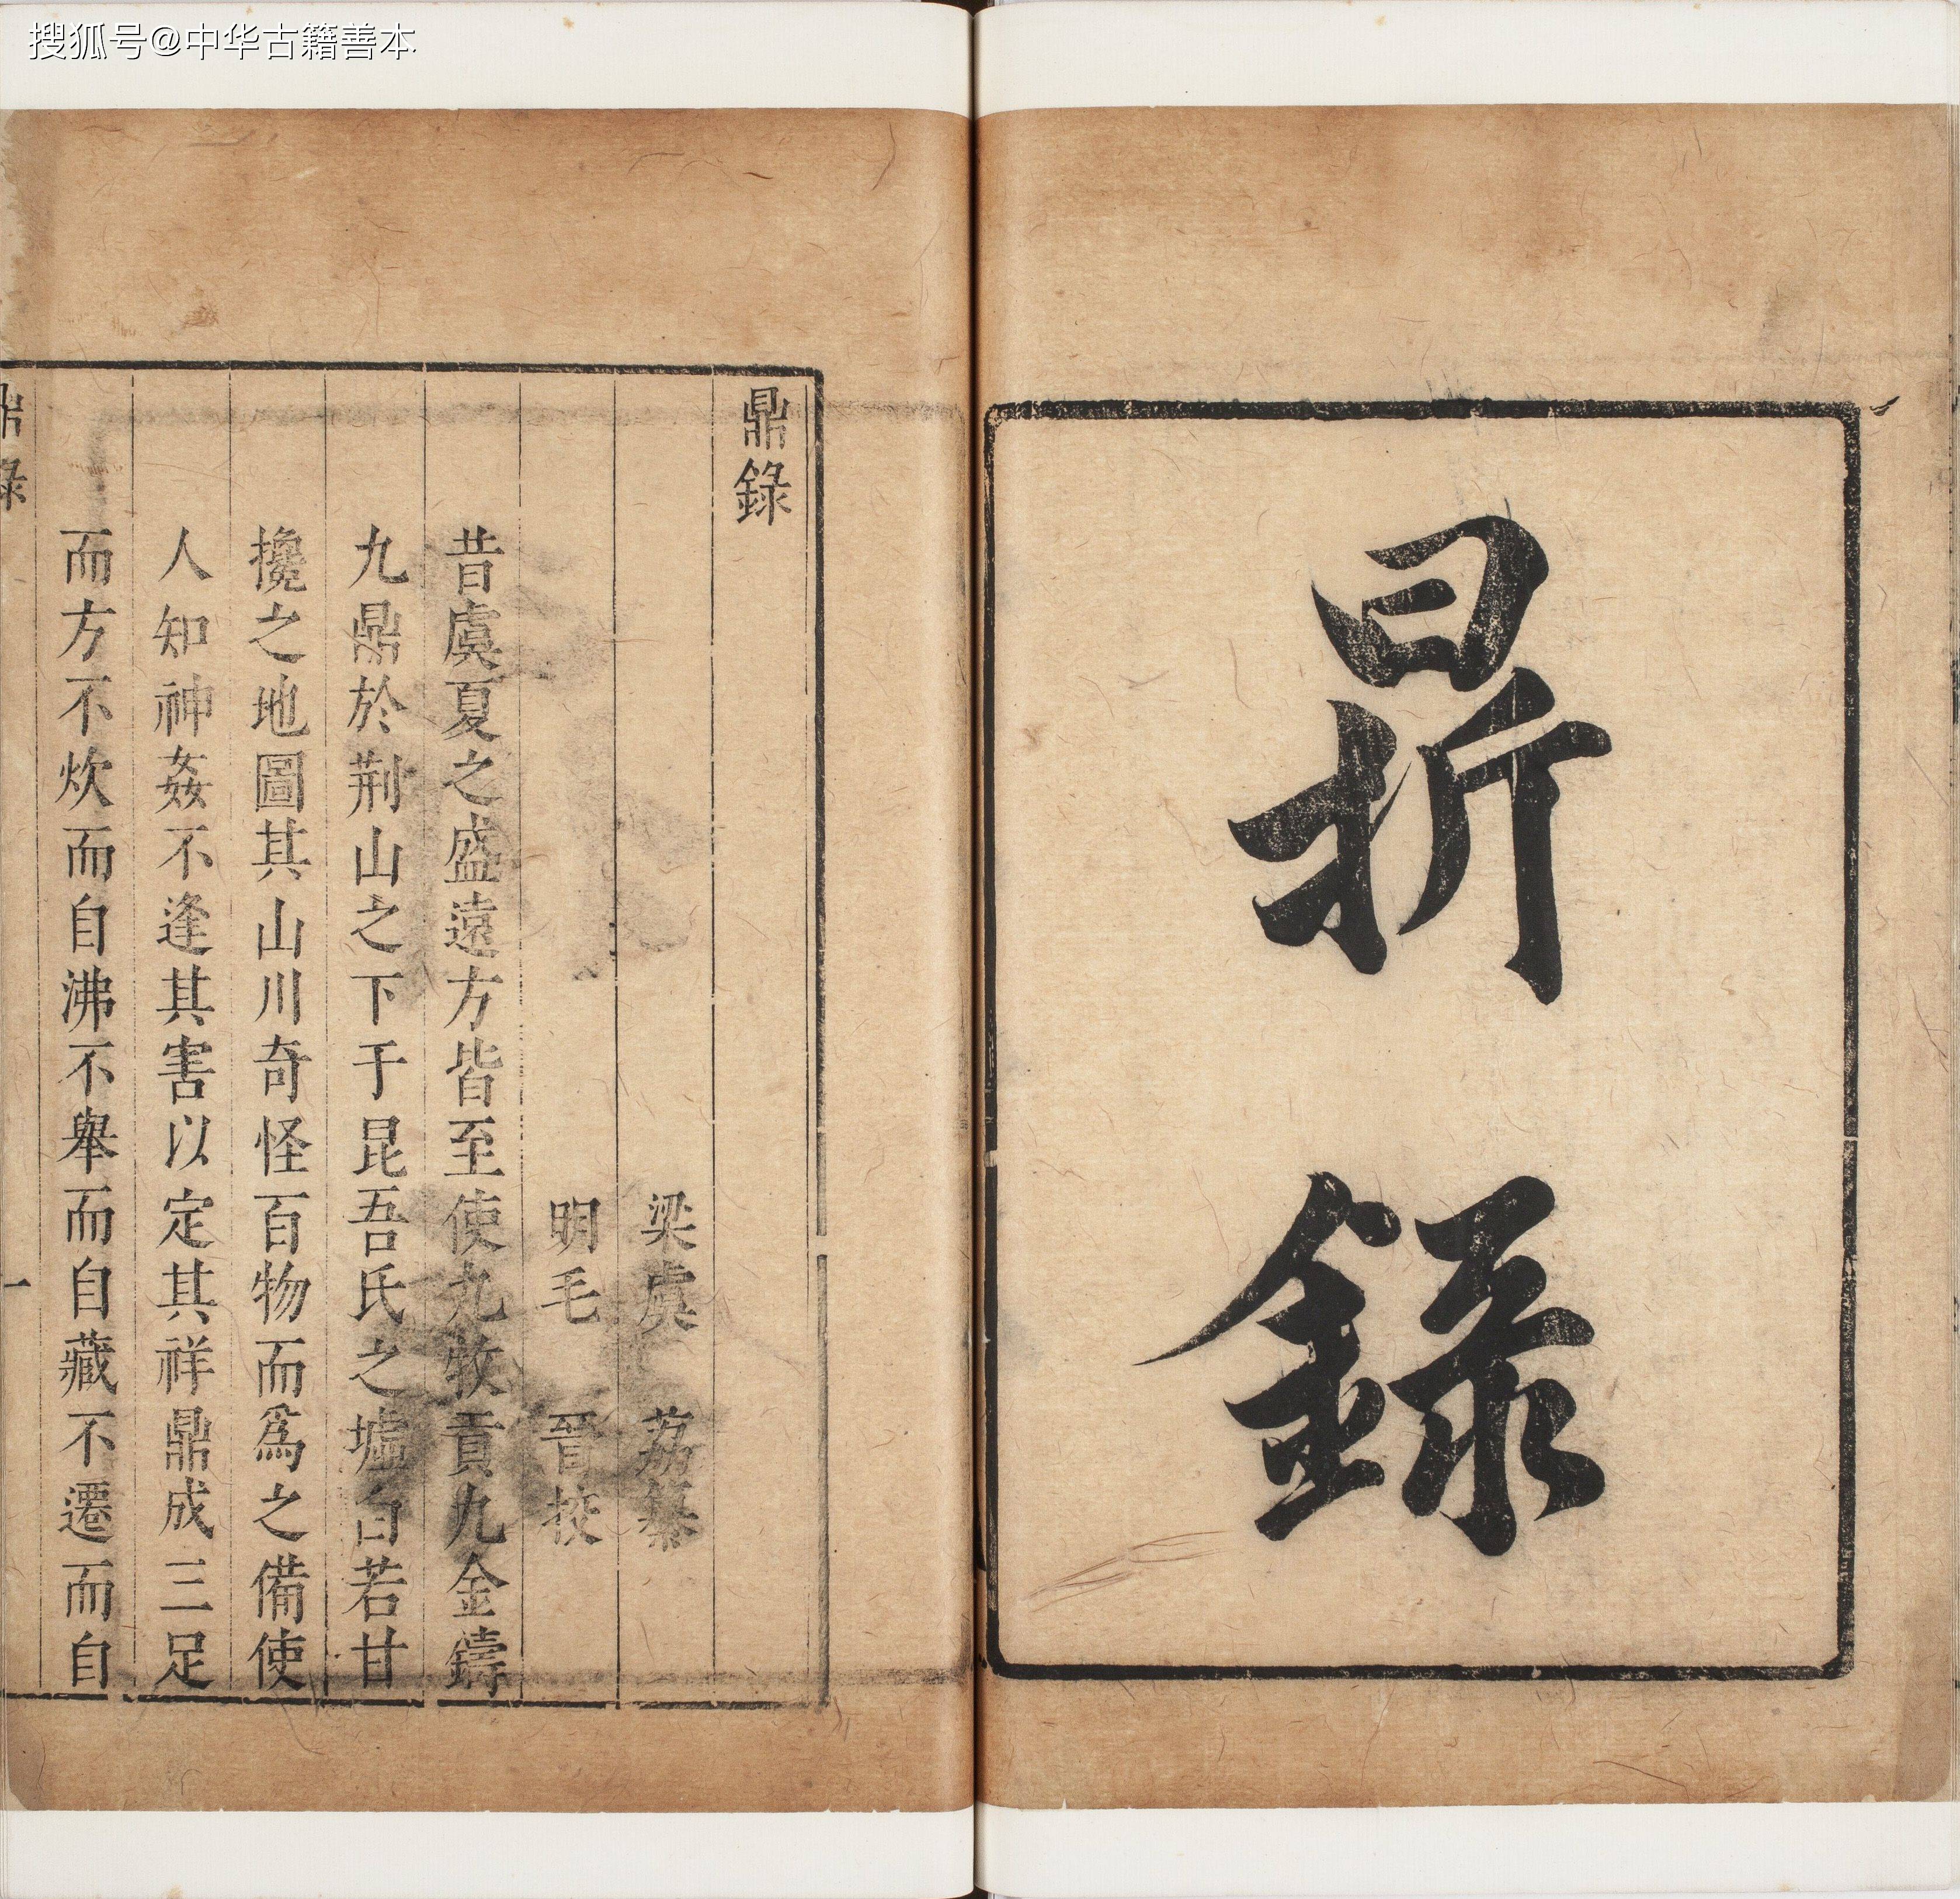 搜狐号@中华古籍善本
鼎錄
鼎錄
梁虞 荔纂
明毛 晉挍
昔虞夏之盛遠方皆至使九牧貢九金鑄
九鼎於荆山之下于昆吾氏之墟白若甘
攙之地圖其山川奇怪百物而爲之備使
人知神姦不逢其害以定其祥鼎成三足
而方不炊而自沸不舉而自藏不遷而自
鼎錄 一